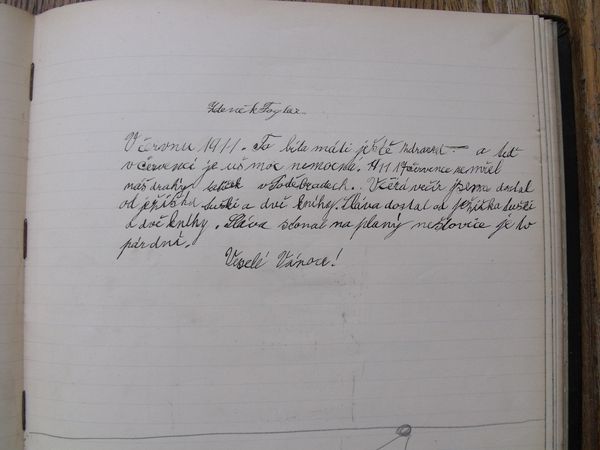 Zdeněk Foglar.
V červnu 1911. To bila máti ještě zdravá — a teť
v červenci je už moc nemocná. 17 července nemřel
náš drahý tatíček v Poděbradech. Včera večír jsme dostal
od ježíška tuški a dvě knihy. Sláva dostal od ježíška tuški
a dvě knihy. Sláva stonal na planý neštovice je to
pár dní.
Veselé Vánoce!